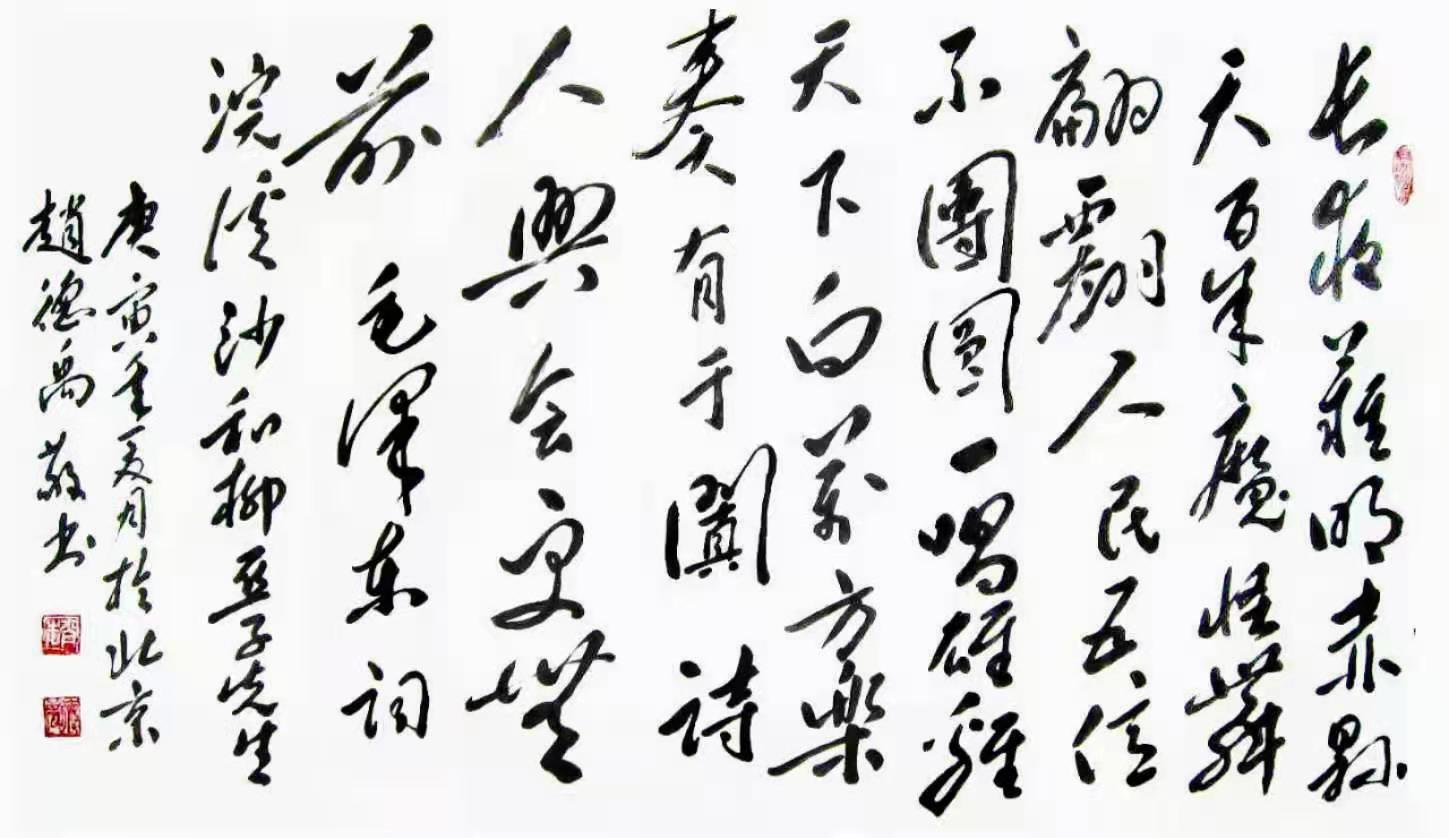 长夜難明赤縣
天百年魔怪舞
翩人民五億
不團圓一唱雄雞
天下白萬方樂
奏有于闐詩
人興会更無
前 毛澤东詞
浣溪沙和柳亞子先生
庚寅年夏月於北京
趙德禹敬书